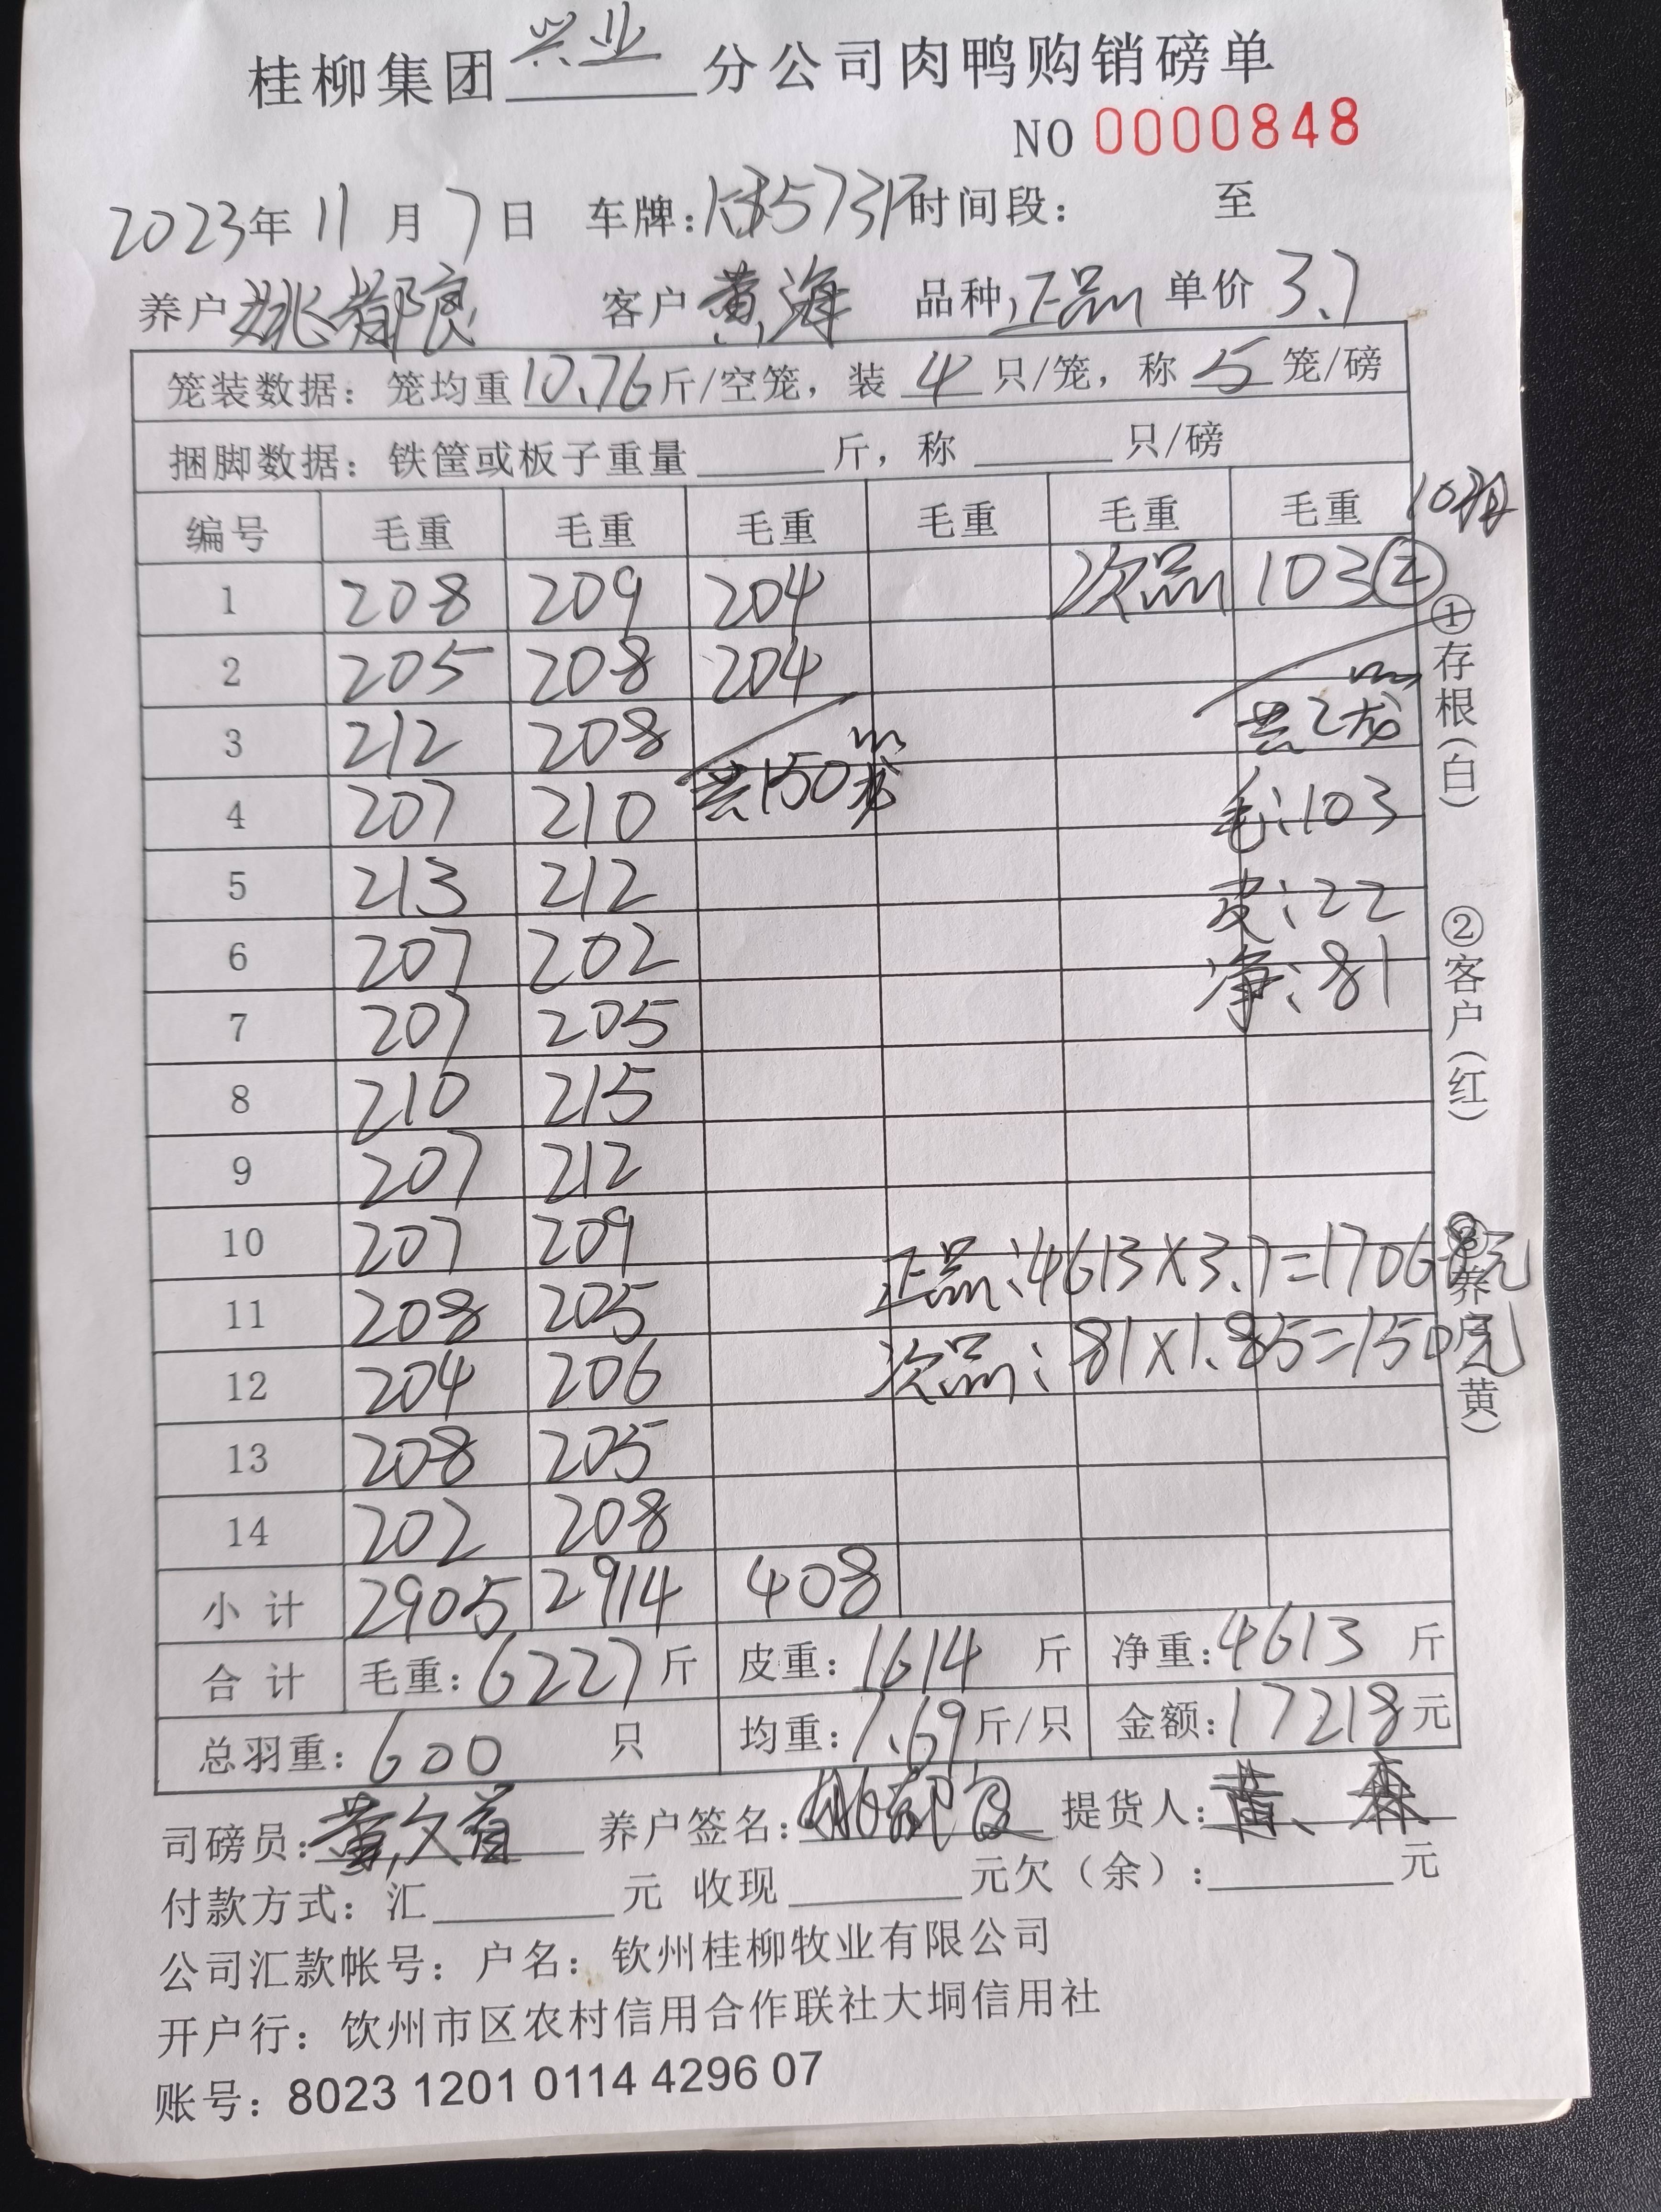 桂柳集团 兴业 分公司肉鸭购销磅单
NO 0000848
2023年 11 月 7 日 车牌: 时间段: 至
养户 姚 客户 黄海 品种 正品 单价 3.7
笼装数据: 笼均重 10.76 斤/空笼, 装 4 只/笼, 称 5 笼/磅
捆脚数据: 铁筐或板子重量 斤, 称 只/磅
编号 毛重 毛重 毛重 毛重 毛重 毛重 10羽
1 208 209 204 次品 103②
2 205 208 204
3 212 208 共2笼
4 207 210 共150笼 毛:103
5 213 212 皮:22
6 207 202 净:81
7 207 205
8 210 215
9 207 212
10 207 209 正品:4613×3.7=17068元
11 208 205
12 204 206 次品:81×1.85=150元
13 208 205
14 202 208
小计 2905 2914 408
合计 毛重: 6227 斤 皮重: 1614 斤 净重: 4613 斤
总羽重: 600 只 均重: 7.69 斤/只 金额: 17218 元
司磅员: 黄 养户签名: 提货人: 黄
付款方式: 汇 元 收现 元欠(余): 元
公司汇款帐号: 户名: 钦州桂柳牧业有限公司
开户行: 钦州市区农村信用合作联社大垌信用社
账号: 8023 1201 0114 4296 07
①存根(白)
②客户(红)
③养户(黄)